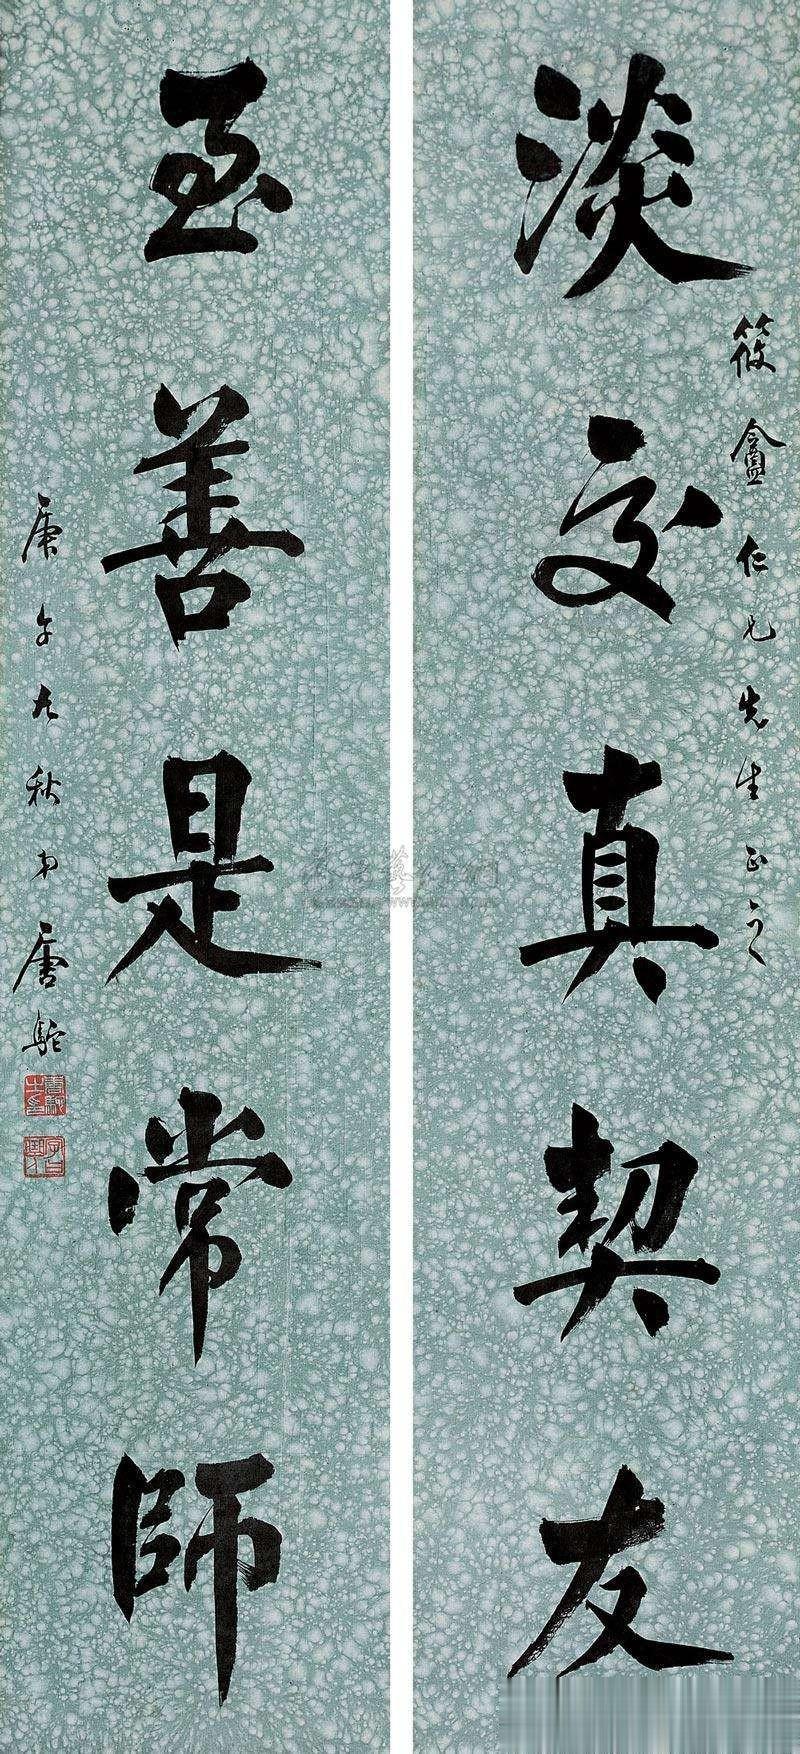 淡交真契友
筱盦仁兄先生正之
至善是常師
庚午九秋 唐駝